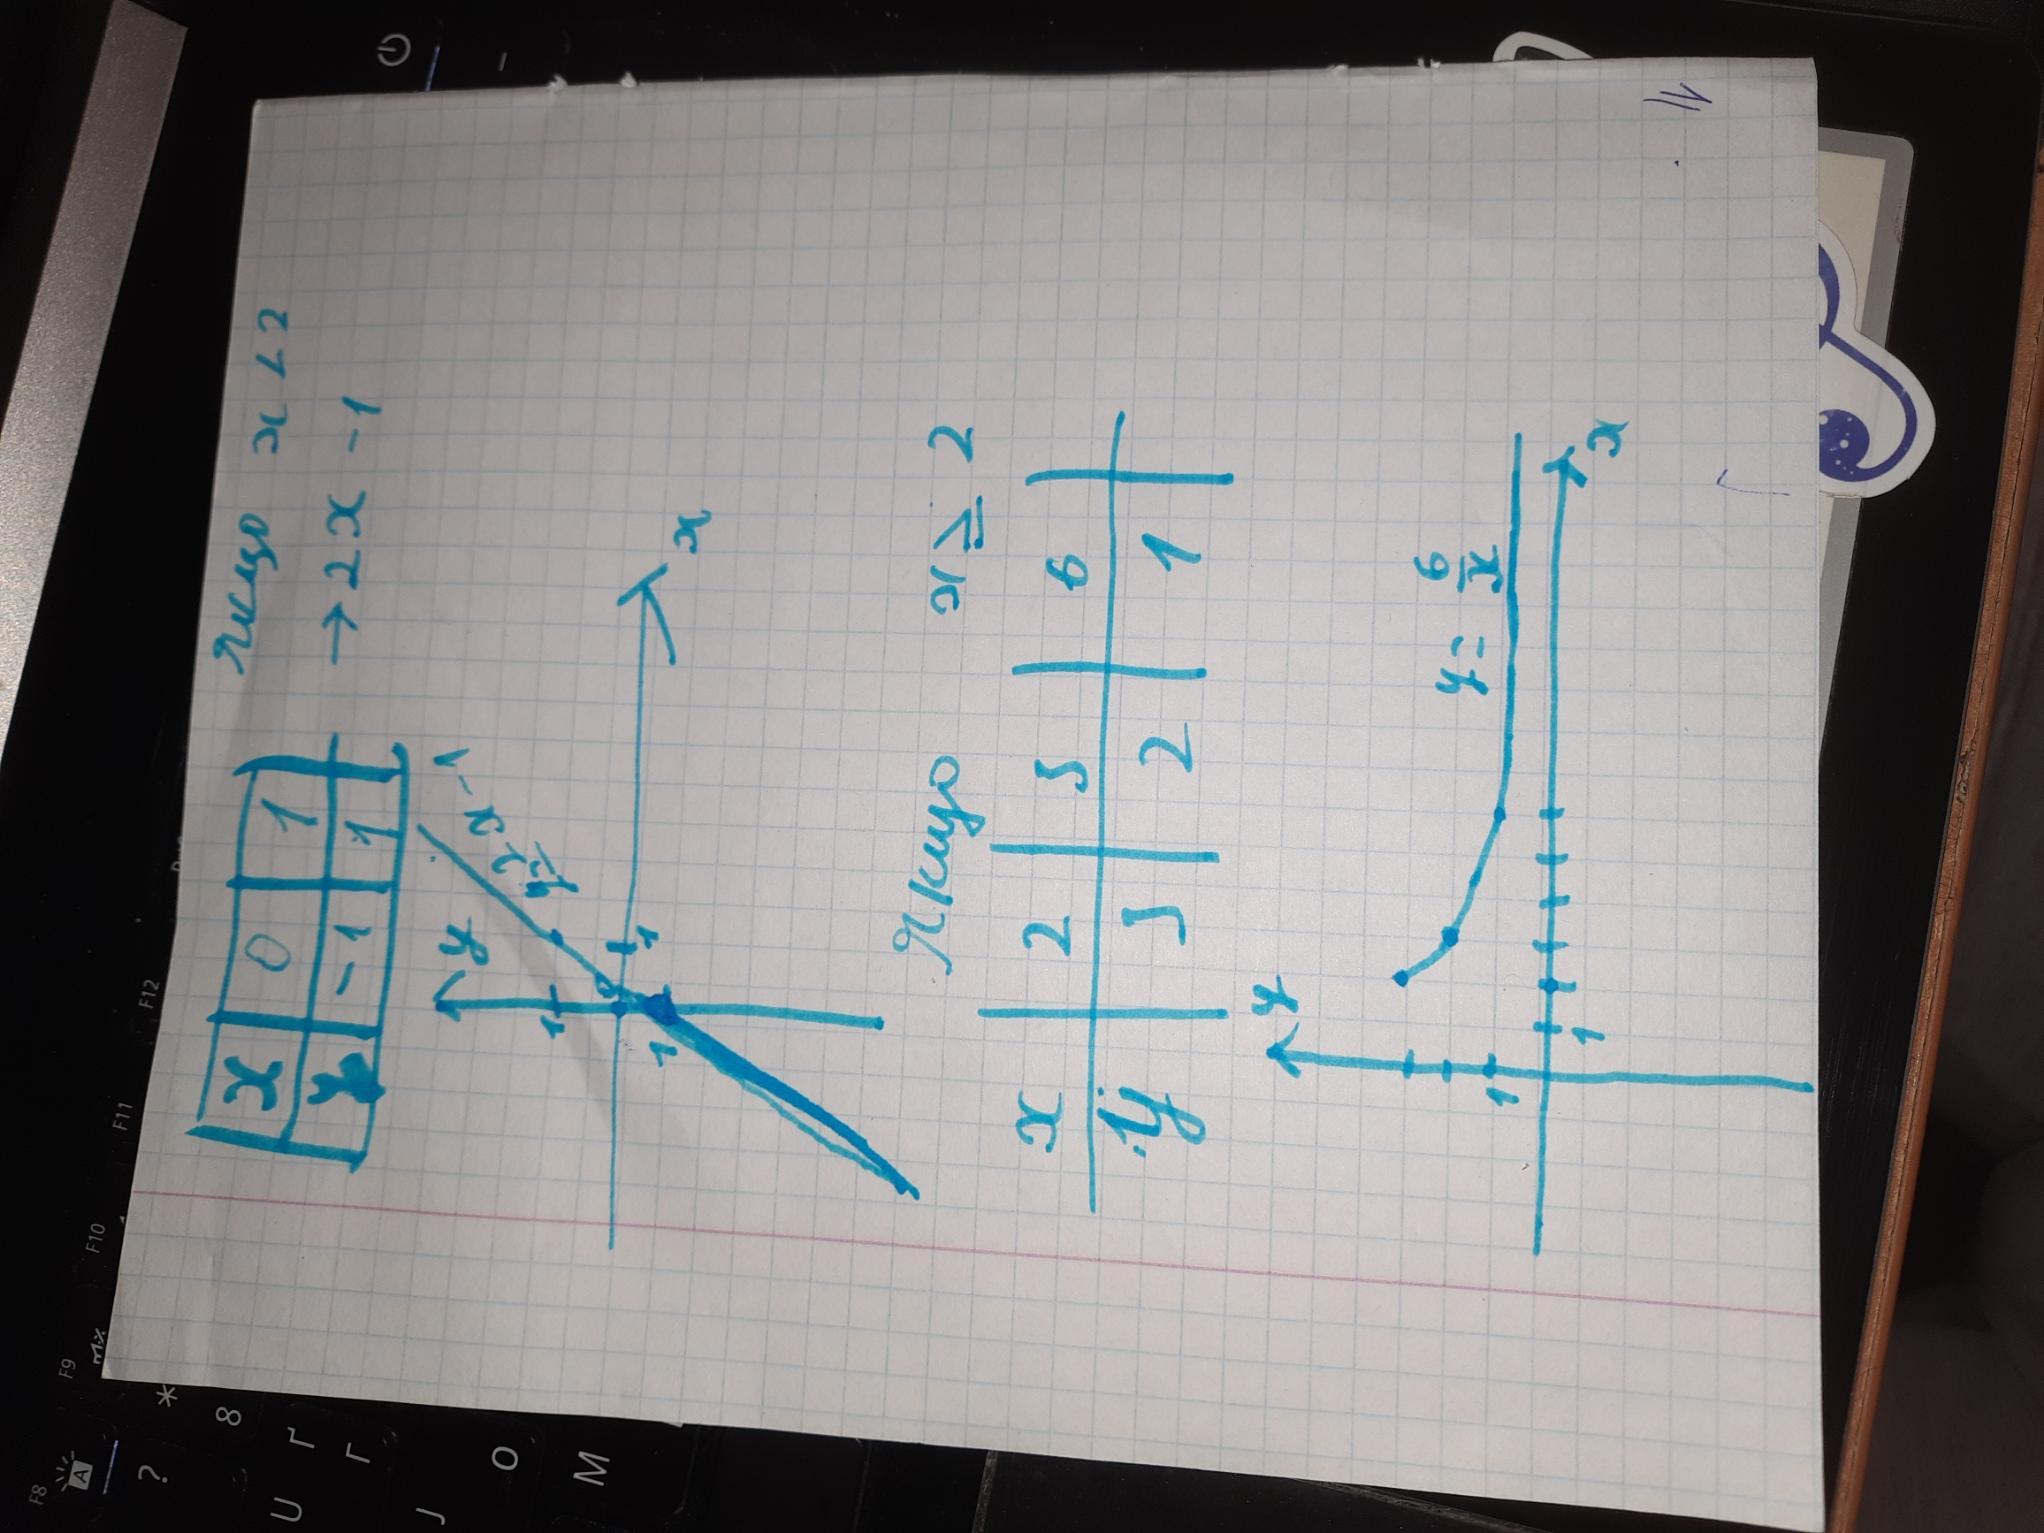 якщо x < 2
x 0 1
y -1 1
→ 2x - 1
y
y=2x-1
1
1
1
x
якщо x ≥ 2
x 2 3 6
y 3 2 1
y
y = 6/x
1
1
x
11
F8 F9 F10 F11 F12
* 8
?
U Г
Г
J
O
M